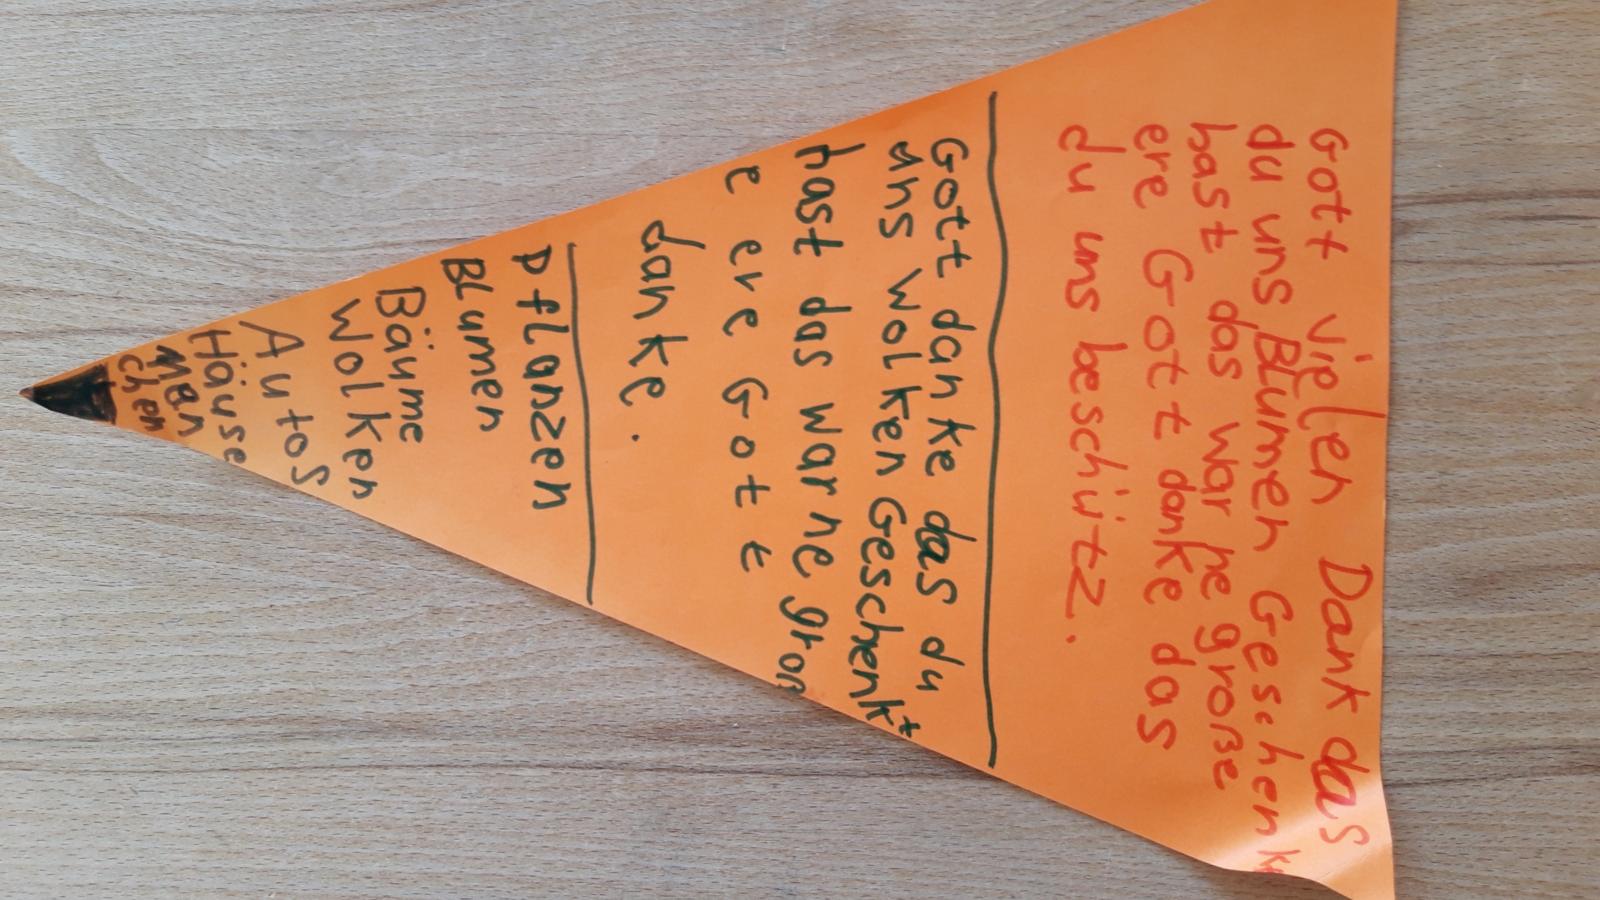 Gott vielen Dank das
du uns Blumen Geschenkt
hast das war ne große
ere Gott danke das
du uns beschütz.
Gott danke das du
uns Wolken Geschenkt
hast das war ne groß
e ere Gott
danke.
Pflanzen
Blumen
Bäume
Wolken
Autos
Häuse
Män
chen